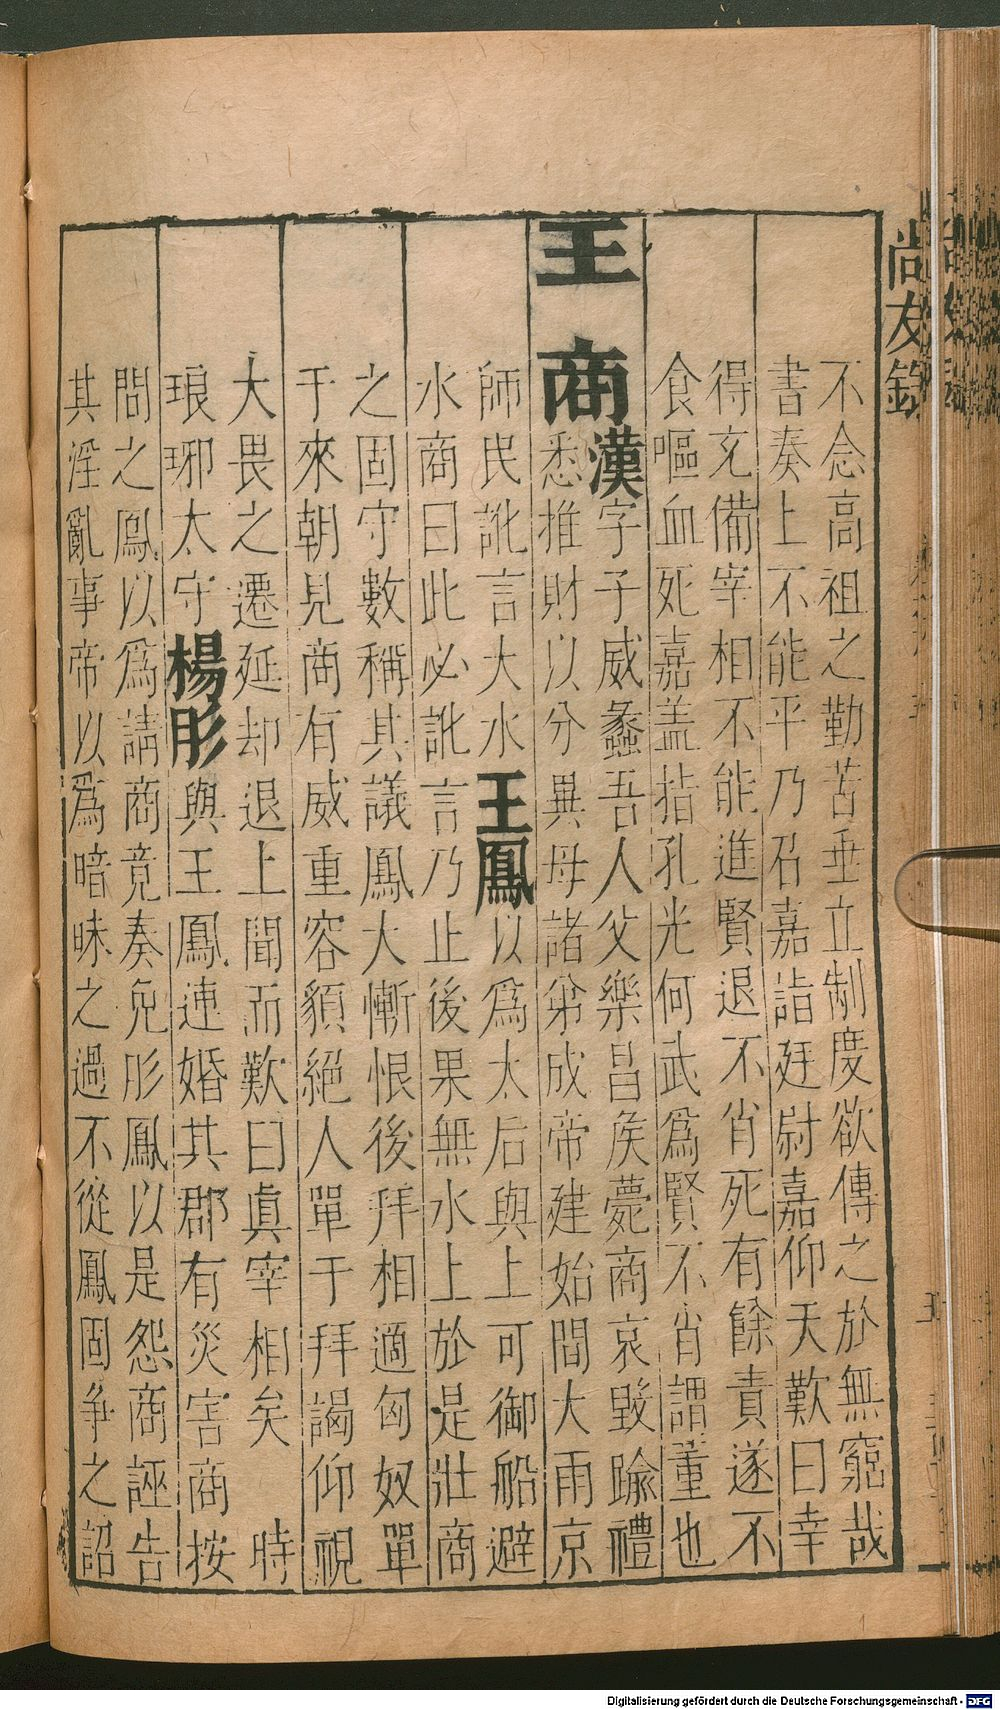 尚友錄
不念高祖之勤苦垂立制度欲傳之於無窮哉
書奏上不能平乃召嘉詣廷尉嘉仰天歎曰幸
得充備宰相不能進賢退不肖死有餘責遂不
食嘔血死嘉盖指孔光何武為賢不肖謂董也
王商漢字子威蠡吾人父樂昌侯薨商哀毀踰禮
悉推財以分異母諸弟成帝建始間大雨京
師民訛言大水王鳳以為太后與上可御船避
水商曰此必訛言乃止後果無水上於是壯商
之固守數稱其議鳳大慚恨後拜相適匈奴單
于來朝見商有威重容貌絕人單于拜謁仰視
大畏之遷延却退上聞而歎曰眞宰相矣 時
琅琊太守楊肜與王鳳連婚其郡有災害商按
問之鳳以為請商竟奏免肜鳳以是怨商誣告
其淫亂事帝以為暗昧之過不從鳳固争之詔
Digitalisierung gefördert durch die Deutsche Forschungsgemeinschaft - DFG